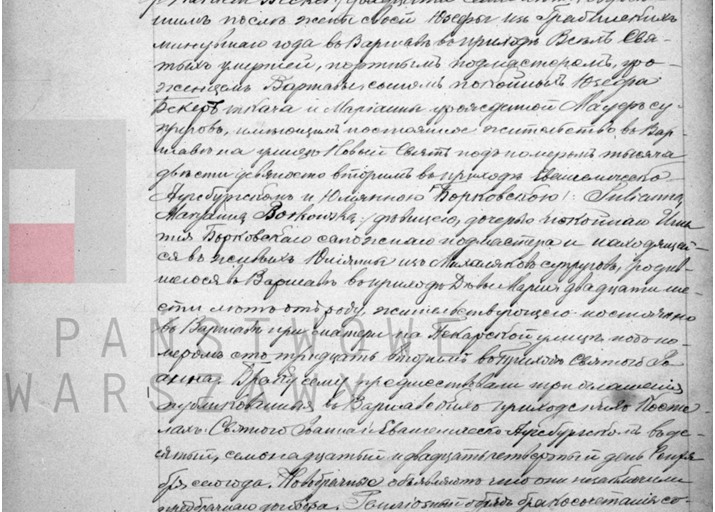 шимъ после жены своей Юзефы изъ
минувшаго года въ Варшаве въ приходе Всехъ Свя-
тыхъ умершей, портнымъ подмастеромъ, уро-
женцемъ Варшавы, сыномъ покойныхъ Юзефа
Бекеръ ткача и Маріанны урожденной Маудеръ су-
пруговъ, имеющимъ постоянное жительство въ Вар-
шаве на улице Новый Светъ подъ номеромъ тысяча
двести девяносто вторымъ въ приходе Евангелическо
Аугсбургскомъ и Юліанною Борковскою /: Julianna
Borkowska :/ девицею, дочерью покойнаго Игна-
тія Борковскаго сапожнаго подмастера и находящей-
ся въ живыхъ изъ супруговъ, родив-
шеюся въ Варшаве въ приходе Девы Маріи двадцати ше-
сти летъ отъ роду, жительствующею постоянно
въ Варшаве при матери на Пекарской улице подъ но-
меромъ сто тридцать вторымъ въ приходе Святого Іо-
анна. Браку сему предшествовали три оглашенія
публикованныя въ Варшаве въ приходскихъ Косте-
лахъ: Святого Іоанна и Евангелическо Аугсбургскомъ въ де-
сятый, семнадцатый и двадцать четвертый день
бря сего года. Новобрачные объявляютъ что они не заключили
предбрачнаго договора. Религіозный обрядъ бракосочетанія со-
PAŃSTWOWE
WARSZAWY